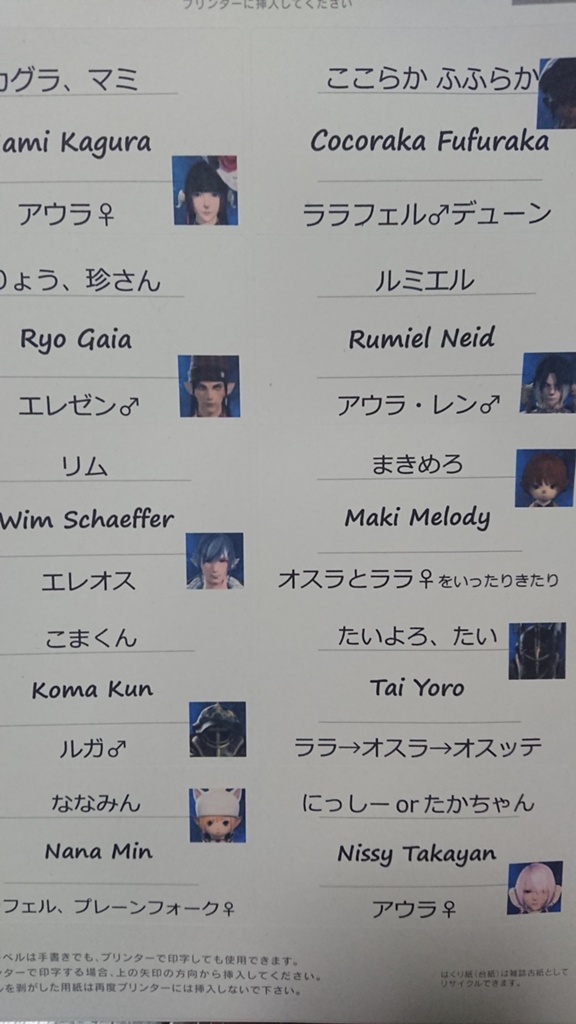 プリンターに挿入してください
カグラ、マミ
ami Kagura
アウラ♀
りょう、珍さん
Ryo Gaia
エレゼン♂
リム
Wim Schaeffer
エレオス
こまくん
Koma Kun
ルガ♂
ななみん
Nana Min
フェル、プレーンフォーク♀
ここらか ふふらか
Cocoraka Fufuraka
ララフェル♂デューン
ルミエル
Rumiel Neid
アウラ・レン♂
まきめろ
Maki Melody
オスラとララ♀をいったりきたり
たいよろ、たい
Tai Yoro
ララ→オスラ→オスッテ
にっしー or たかちゃん
Nissy Takayan
アウラ♀
ベルは手書きでも、プリンターで印字しても使用できます。
ターで印字する場合、上の矢印の方向から挿入してください。
ルを剥がした用紙は再度プリンターには挿入しないで下さい。
はくり紙(台紙)は雑誌古紙として
リサイクルできます。